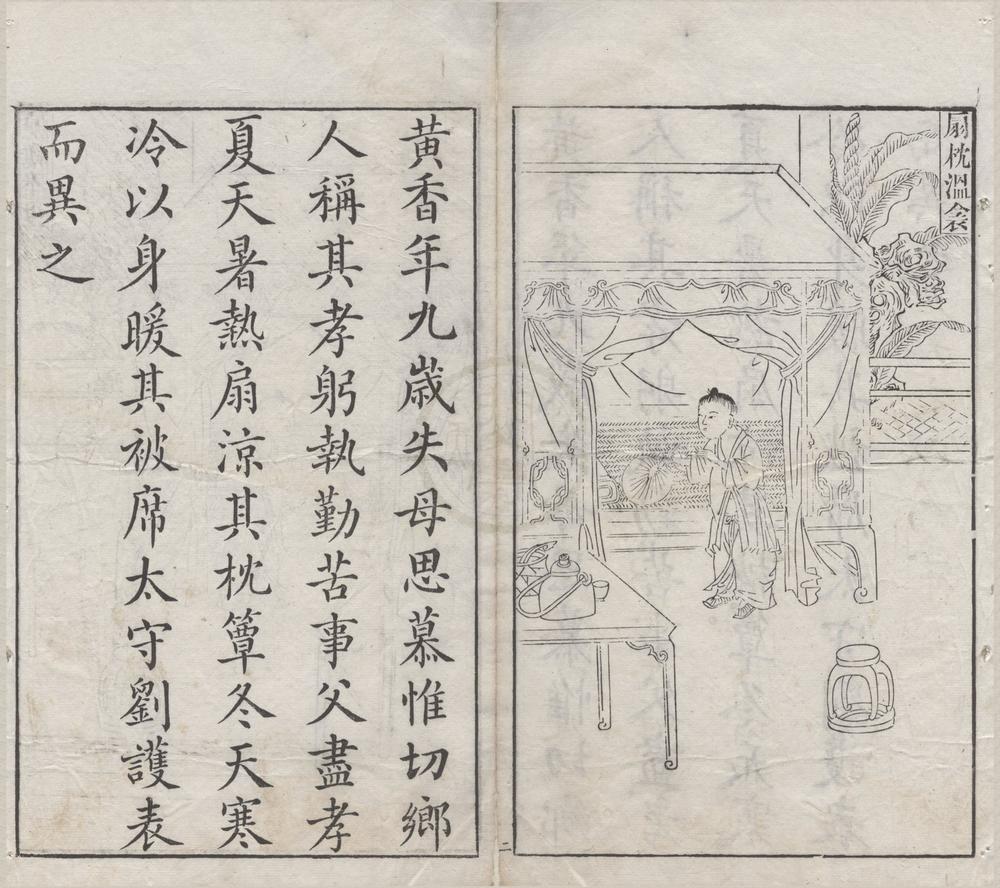 扇枕溫衾
黃香年九歲失母思慕惟切鄉
人稱其孝躬執勤苦事父盡孝
夏天暑熱扇涼其枕簟冬天寒
冷以身暖其被席太守劉護表
而異之
二